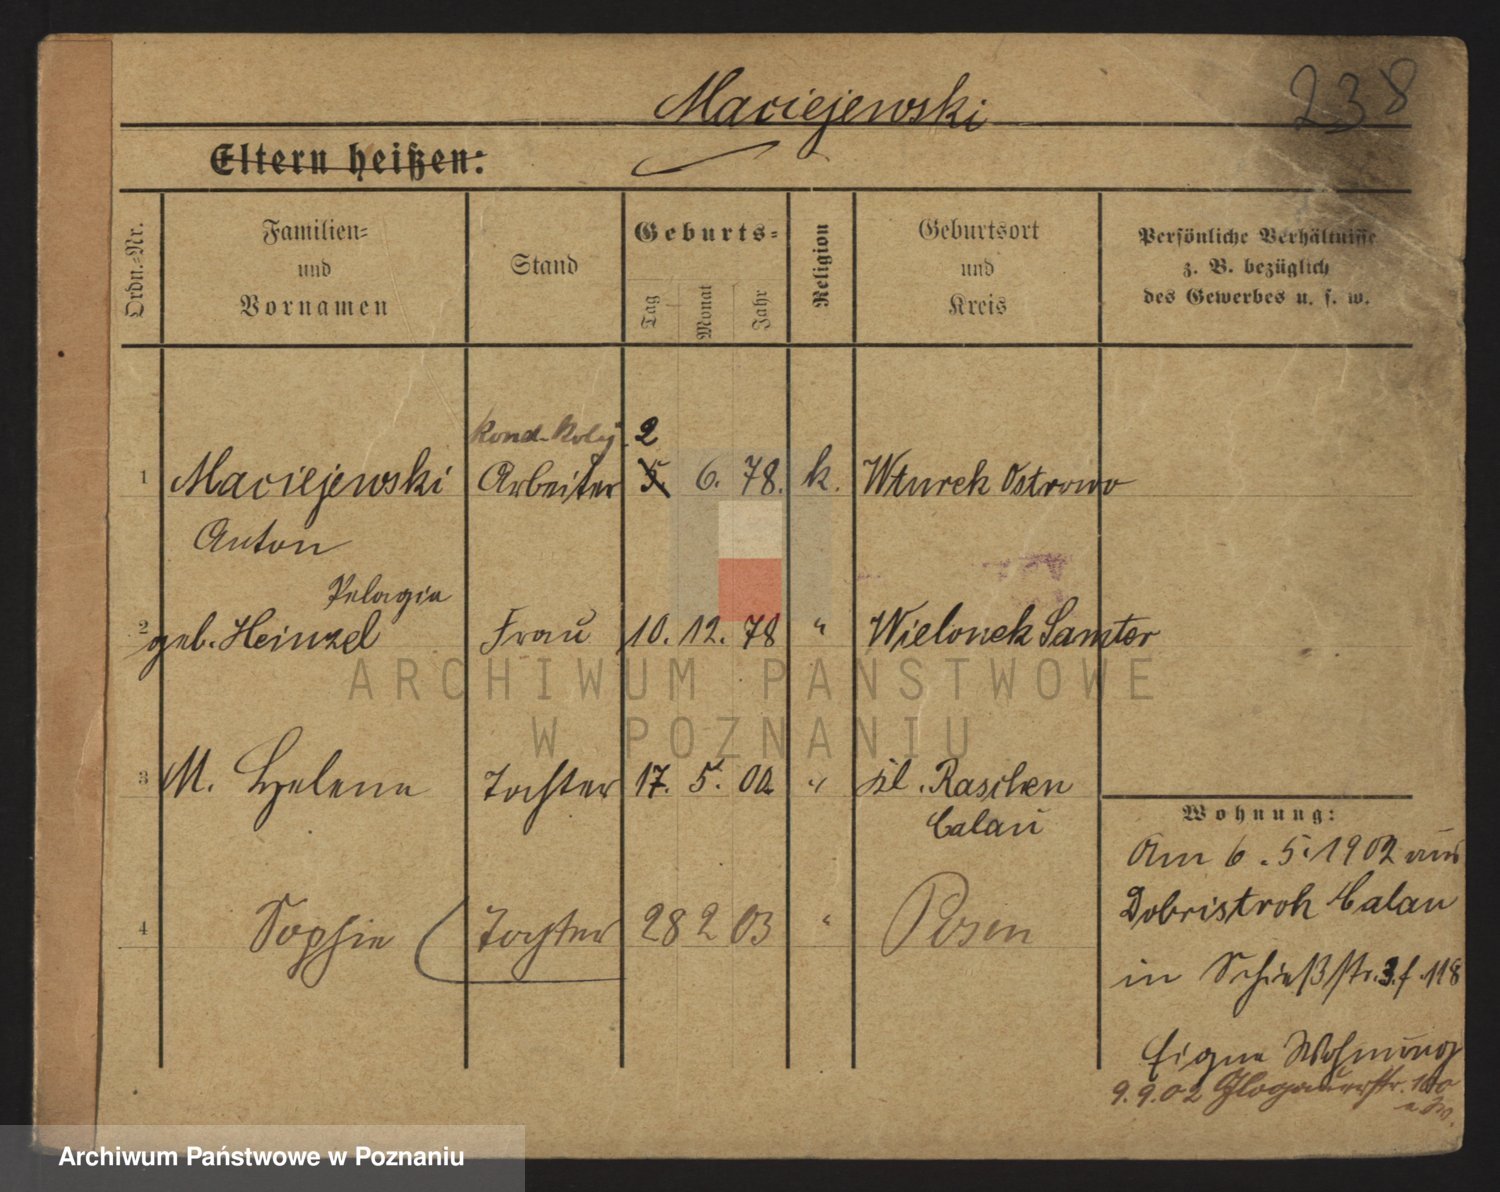 Maciejewski
238
Eltern heißen:
Ordn.-Nr.
Familien-
und
Vornamen
Stand
Geburts-
Tag
Monat
Jahr
Religion
Geburtsort
und
Kreis
Persönliche Verhältnisse
z. B. bezüglich
des Gewerbes u. s. w.
2
1 Maciejewski Arbeiter 5. 6. 78. k. Wturek Ostrowo
Anton
Pelagia
2 geb. Heinzel Frau 10. 12. 78 " Wielonek Samter
ARCHIWUM PAŃSTWOWE
W POZNANIU
3 M. Helene Tochter 17. 5. 00 " kl. Raschen
Calau
4 Sophie Tochter 28 2 03 " Posen
Wohnung:
Am 6. 5. 1902 aus
Dobristroh Calau
in Schießstr. 3. f. 118
Eigne Wohnung
9.9.02 Glogauerstr. 100
Archiwum Państwowe w Poznaniu